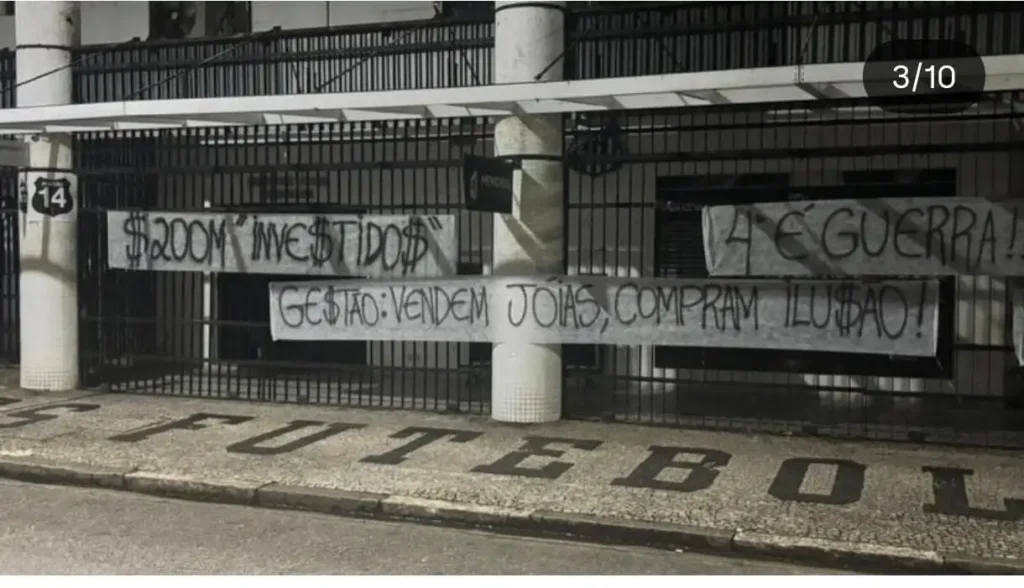 3/10
14
MEMORIAL
$200M "INVE$TIDO$"
4 É GUERRA!!
GE$TÃO: VENDEM JÓIAS, COMPRAM ILU$ÃO!
S FUTEBOL